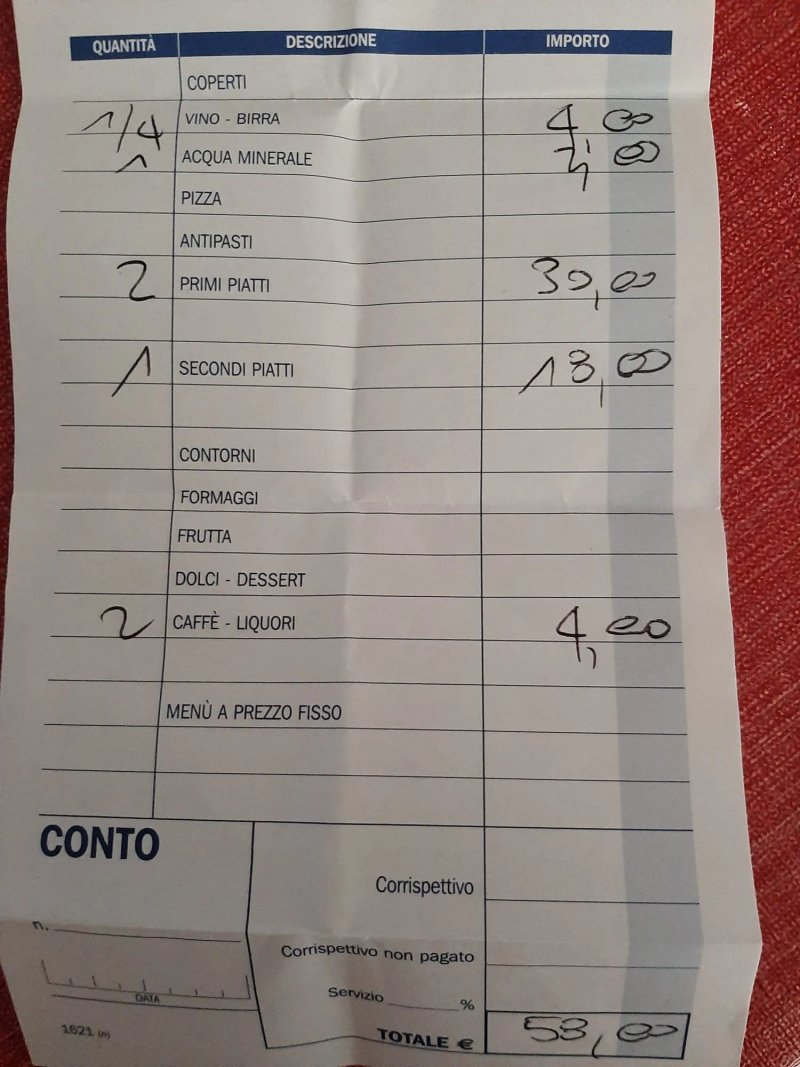 QUANTITÀ DESCRIZIONE IMPORTO
COPERTI
1/4 VINO - BIRRA 4,00
1 ACQUA MINERALE 2,00
PIZZA
ANTIPASTI
2 PRIMI PIATTI 30,00
1 SECONDI PIATTI 18,00
CONTORNI
FORMAGGI
FRUTTA
DOLCI - DESSERT
2 CAFFÈ - LIQUORI 4,00
MENÙ A PREZZO FISSO
CONTO
Corrispettivo
n.
Corrispettivo non pagato
DATA
Servizio %
1621
TOTALE € 58,00